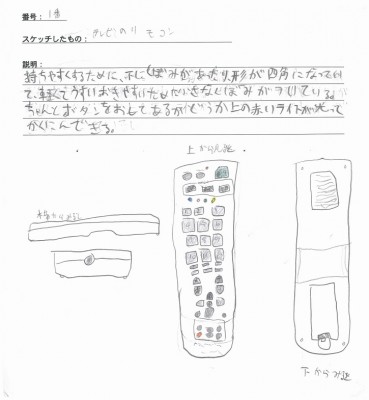 番号： 1番
スケッチしたもの： テレビのリモコン
説明：
持ちやすくするために、少しくぼみがあったり、形が四角になっていて、
軽くてうすい おきやすいため小さなくぼみがついている。
ちゃんとボタンをおしてあるかどうか上の赤いライトが光って
かくにんできる。
上から見た
横から
下から